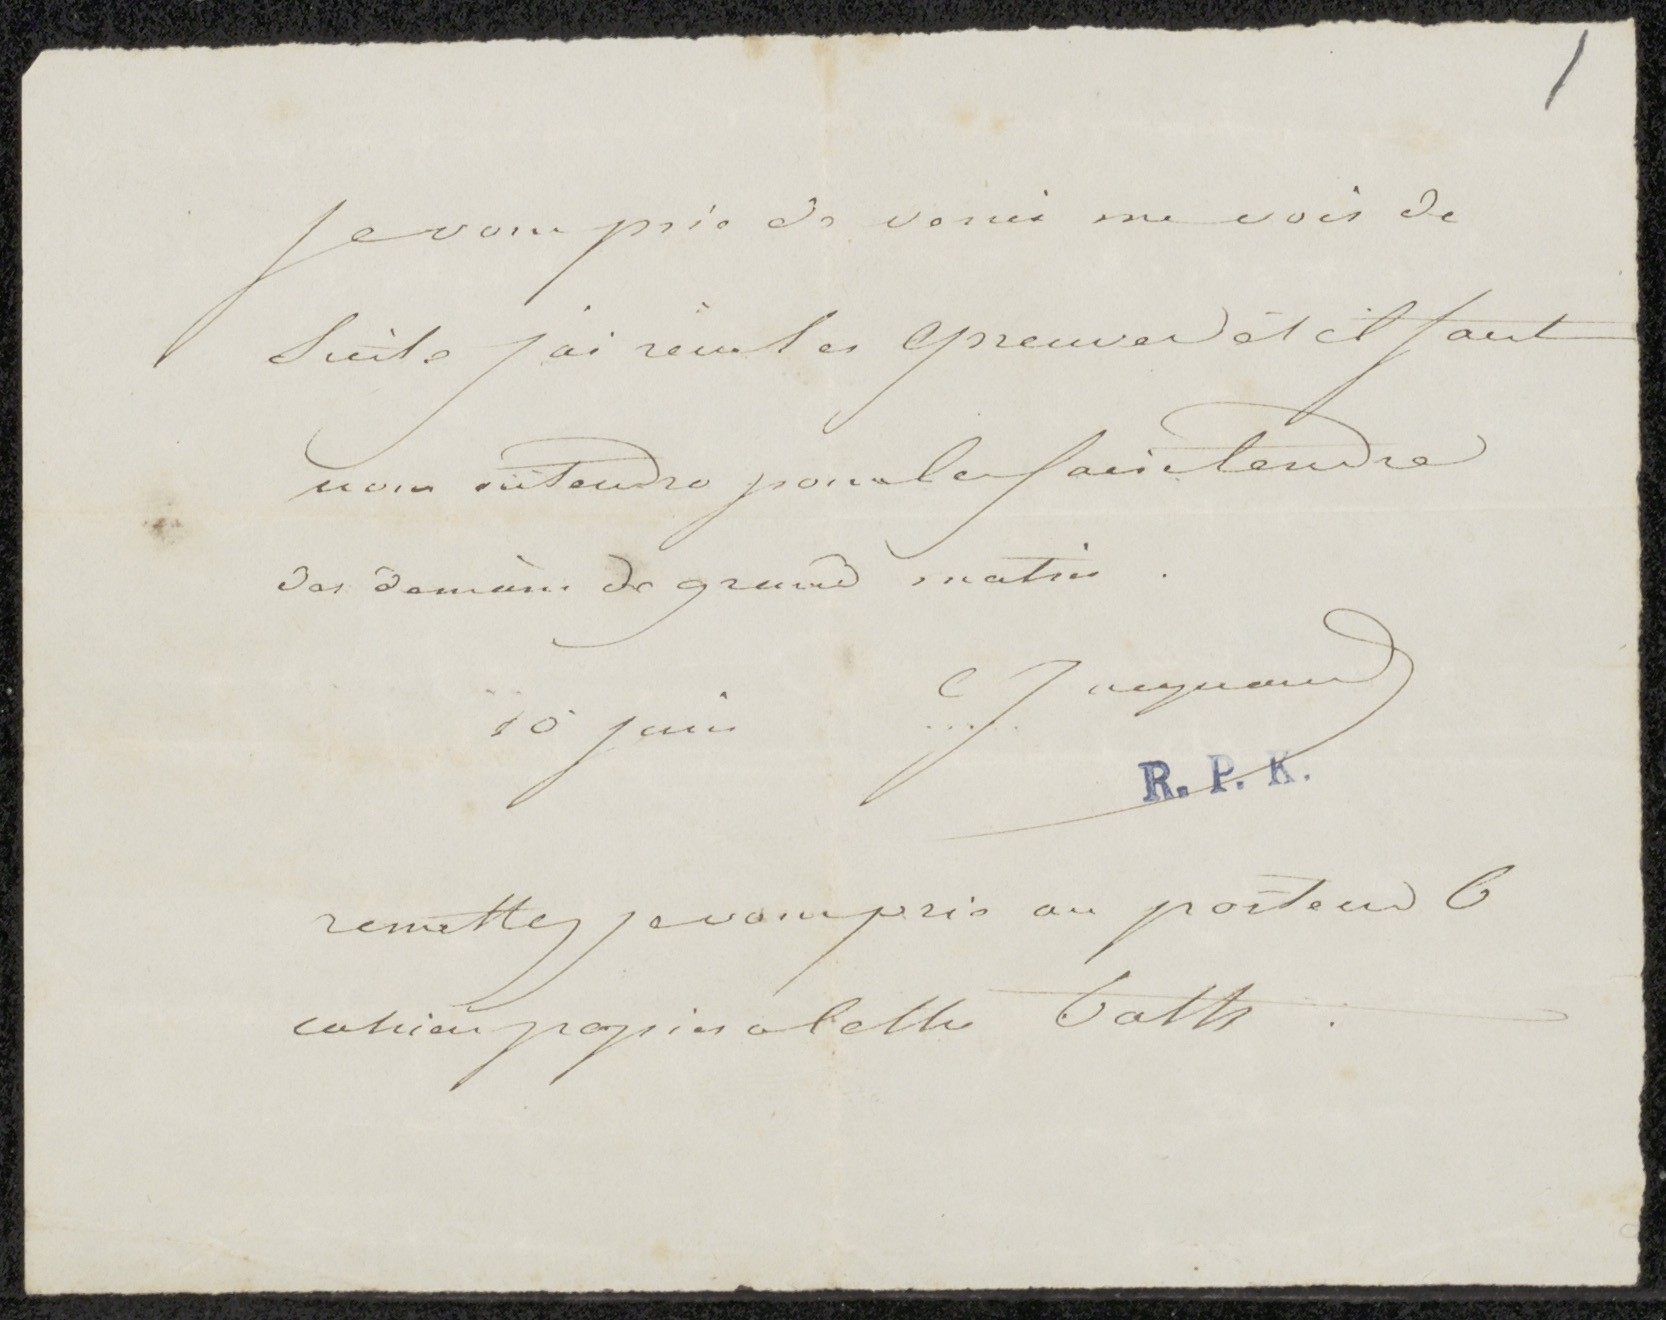 1
je vous prie de venir me voir de
suite j'ai reçu les epreuves et il faut
nous entendre pour les faire tendre
des demain de grand matin.
10 juin C Jacquand
R. P. K.
remettez je vous prie au porteur 6
cahiers papier a lettre Bath.